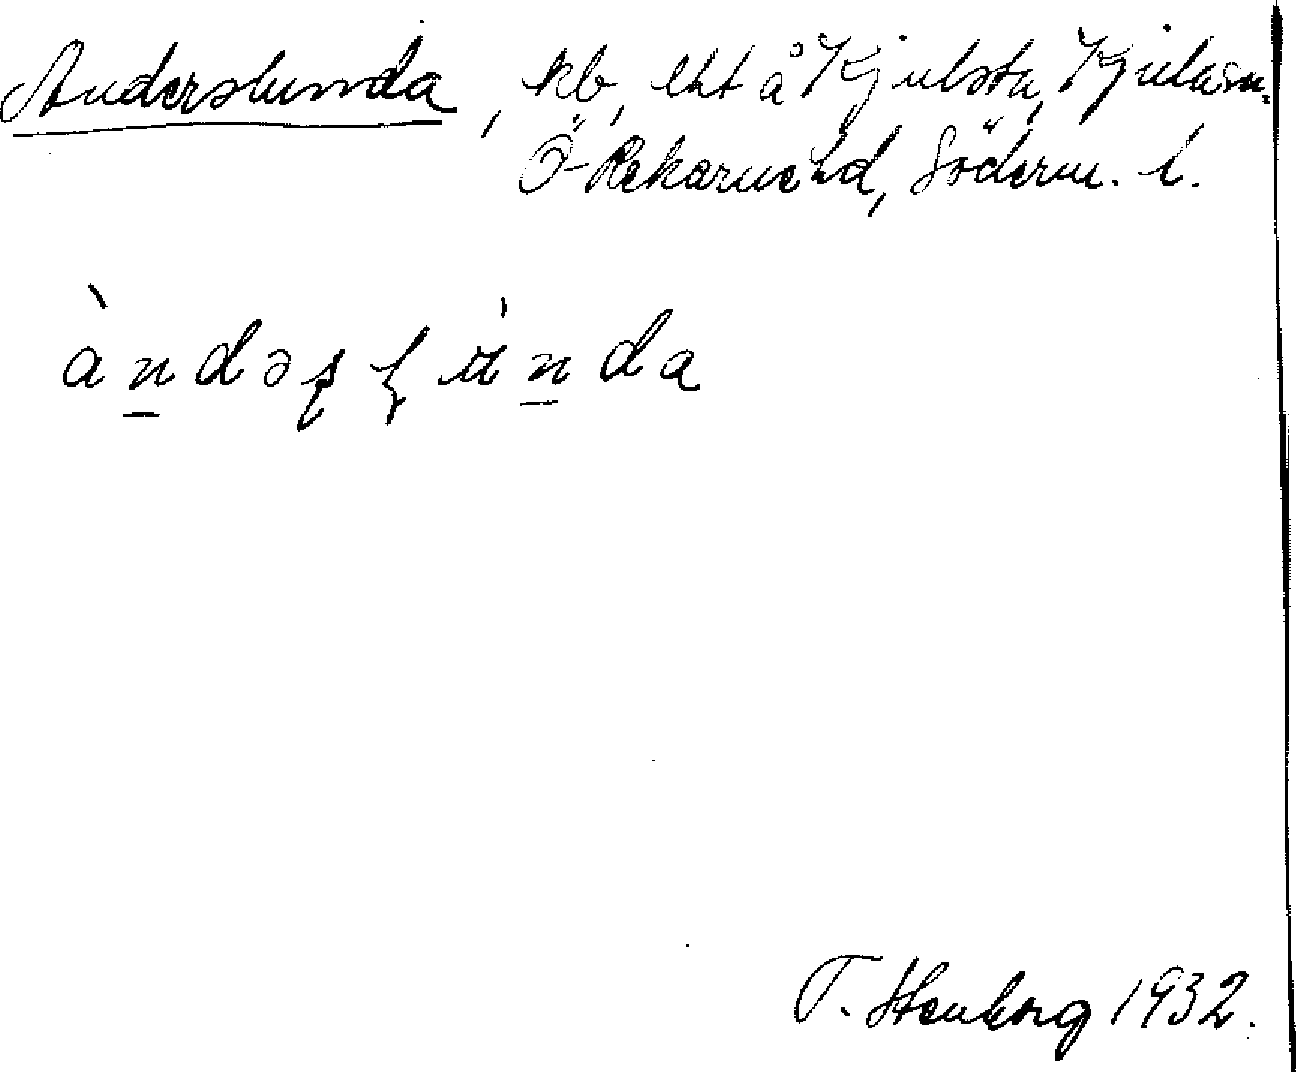 Anderslunda, kb, lht å Kjulsta, Kjula sn.
Ö-Rekarne hd, Söderm. l.
àndəʂɭùnda
T. Stenborg 1932.